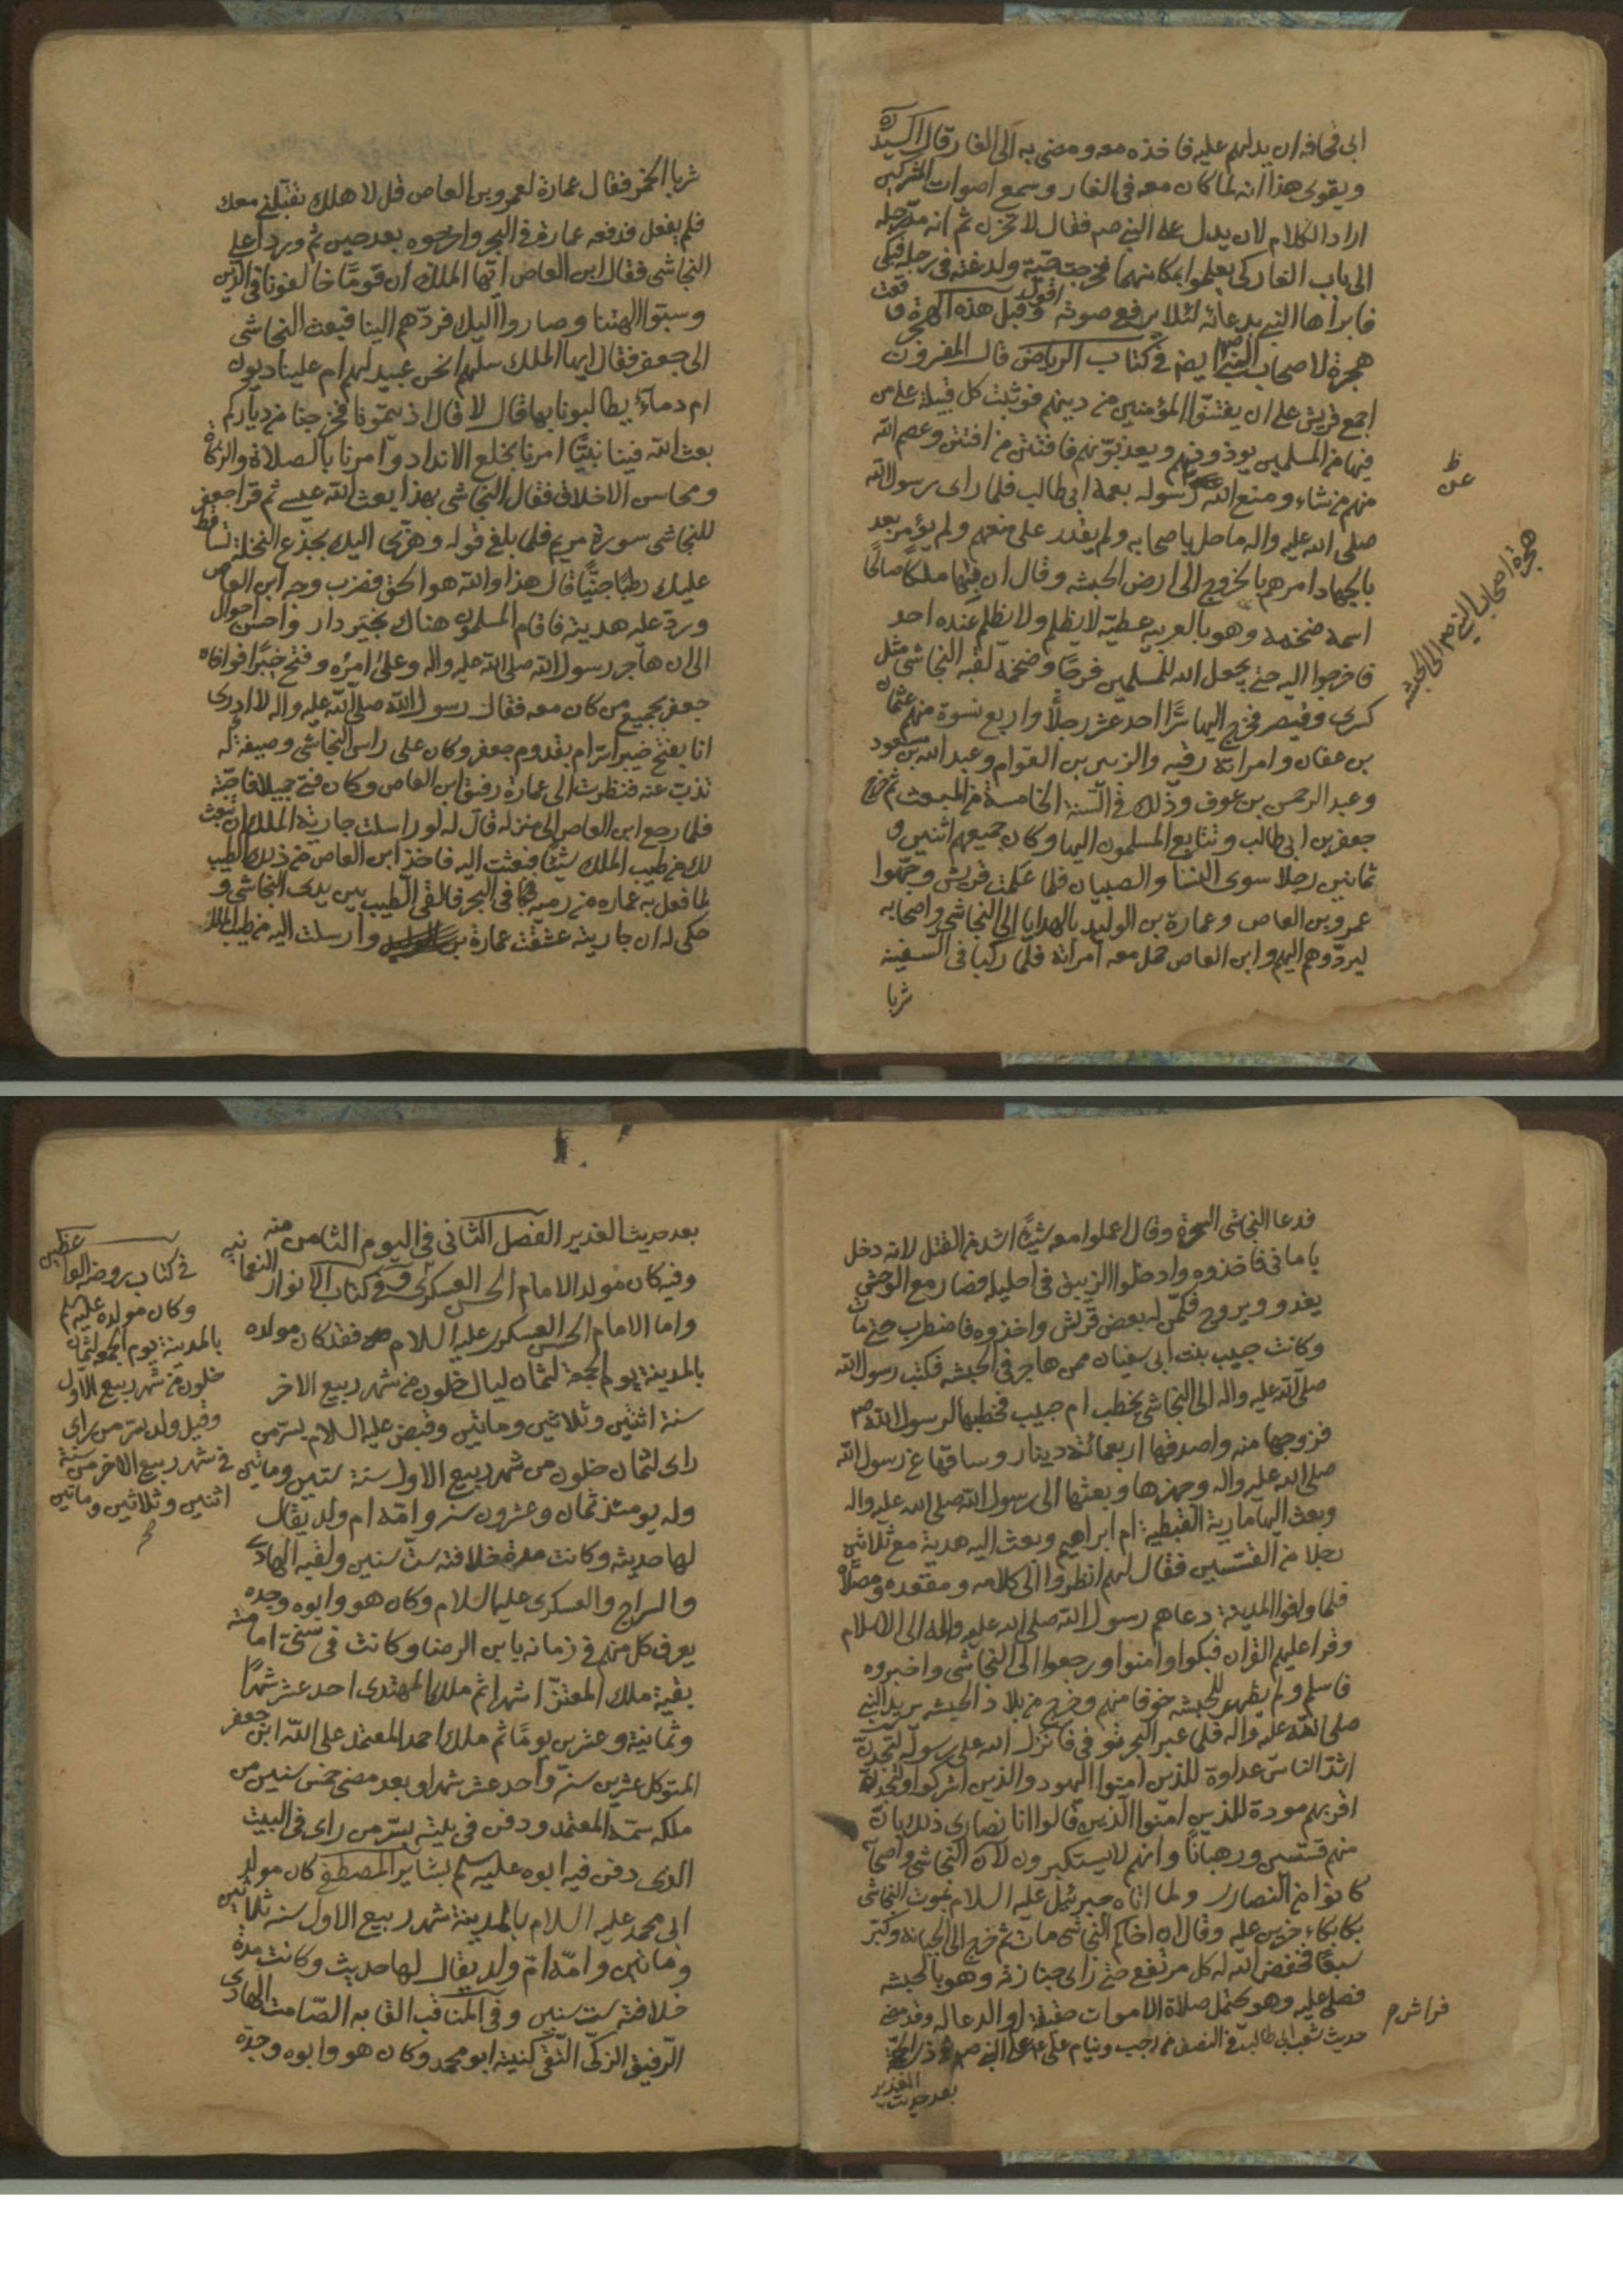 ابى قحافه ان يدلهم عليه فاخذه معه ومضى به الى الغار وقال السيد ره
ويقوى هذا انه لما كان معه فى الغار وسمع اصوات المشركين
اراد الكلام لان يدل على النبي صم فقال لا تحزن ثم انه مد رجله
الى باب الغار كى يعلموا بمكانهما فخرجت حية ولدغته فى رجله فبكى
فابراها النبي بدعائه لئلا يرفع صوته اقول وقبل هذه الهجرة وقعت
هجرة لاصحاب النبي ايضا فى كتاب الرياض قال المفسرون
اجمع قريش على ان يفتنوا المؤمنين من دينهم فوثبت كل قبيلة على من
فيها من المسلمين يوذونهم ويعذبونهم فافتتن من افتتن وعصم الله
منهم من شاء ومنع الله رسوله بعمه ابى طالب فلما راى رسول الله
صلى الله عليه واله ما حل باصحابه ولم يقدر على منعهم ولم يؤمر بعد
بالجهاد امرهم بالخروج الى ارض الحبشه وقال ان بها ملكا صالحا
اسمه ضخمه وهو بالعربيه عطيه لا يظلم ولا يظلم عنده احد
فاخرجوا اليه حتى يجعل الله للمسلمين فرجا وضخمه لقبه النجاشى مثل
كسرى وقيصر فخرج اليها سرا احد عشر رجلا واربع نسوة منهم عثمان
بن عفان وامراته رقيه والزبير بن العوام وعبد الله بن مسعود
وعبد الرحمن بن عوف وذلك فى السنة الخامسة من المبعث ثم خرج
جعفر بن ابى طالب وتتابع المسلمون اليها وكان جميعهم اثنين و
ثمانين رجلا سوى النسا والصبيان فلما علمت قريش وجهوا
عمرو بن العاص وعمارة بن الوليد بالهدايا الى النجاشى واصحابه
ليردوهم اليهم وابن العاص حمل معه امراته فلما ركبا فى السفينه
شربا
ظ
عن
هجرة اصحاب النبي صم الى الحبشه
شربا الخمر فقال عمارة لعمرو بن العاص قل لاهلك تقبلنى معك
فلم يفعل فدفعه عمارة فى البحر واخرجوه بعد حين ثم وردا على
النجاشى فقال ابن العاص ايها الملك ان قوما خالفونا فى الدين
وسبوا الهتنا وصاروا اليك فردهم الينا فبعث النجاشى
الى جعفر فقال ايها الملك سلهم انحن عبيد لهم ام علينا ديون
ام دماء يطالبونا بها قال لا قال اذ يتمونا فخرجنا من دياركم
بعث الله فينا نبيا امرنا بخلع الانداد وامرنا بالصلاة والزكاة
ومحاسن الاخلاق فقال النجاشى بهذا بعث الله عيسى ثم قرا جعفر
للنجاشى سورة مريم فلما بلغ قوله وهزى اليك بجذع النخلة تساقط
عليك رطبا جنيا قال هذا والله هو الحق فضرب وجه ابن العاص
ورد عليه هديته فاقام المسلمون هناك بخير دار واحسن احوال
الى ان هاجر رسول الله صلى الله عليه واله وعلى امره وفتح خيبرا فوافاه
جعفر بجميع من كان معه فقال رسول الله صلى الله عليه واله لا ادرى
انا بفتح خيبر اسر ام بقدوم جعفر وكان على راس النجاشى وصيفة له
تذب عنه فنظرت الى عمارة رفيق ابن العاص وكان فتى جميلا فاحبته
فلما رجع ابن العاص الى منزله قال له لو راسلت جارية الملك ان تبعث
لك من طيب الملك شيئا فبعثت اليه فاخذ ابن العاص من ذلك الطيب
لما فعل به عماره من رميه فى البحر فالقى الطيب بين يدى النجاشى و
حكى له ان جاريته عشقت عمارة بن الوليد وارسلت اليه من طيب الملك
فدعا النجاشى السحرة وقال اعملوا معه شيئا اشد من القتل لانه دخل
بامانى فاخذوه وادخلوا الزيبق فى احليله فصار مع الوحش
يغدو ويروح فكمن له بعض قريش واخذوه فاضطرب حتى مات
وكانت حبيب بنت ابى سفيان ممن هاجر فى الحبشه فكتب رسول الله
صلى الله عليه واله الى النجاشى يخطب ام حبيب فخطبها لرسول الله ص
فزوجها منه واصدقها اربعمائة دينار وساقها عن رسول الله
صلى الله عليه واله وجهزها وبعثها الى رسول الله صلى الله عليه واله
وبعث اليها مارية القبطية ام ابراهيم وبعث اليه هدية مع ثلاثين
رجلا من القسيسين فقال لهم انظروا الى كلامه ومقعده ومصلاه
فلما وافوا المدينة دعاهم رسول الله صلى الله عليه واله الى الاسلام
وقرا عليهم القران فبكوا وامنوا ورجعوا الى النجاشى واخبروه
فاسلم ولم يظهر للحبشه خوفا منهم وخرج من بلاد الحبشه يريد النبي
صلى الله عليه واله فلما عبر البحر توفى فانزل الله على رسوله لتجدن
اشد الناس عداوة للذين امنوا اليهود والذين اشركوا ولتجدن
اقربهم مودة للذين امنوا الذين قالوا انا نصارى ذلك بان
منهم قسيسين ورهبانا وانهم لا يستكبرون لان النجاشى واصحابه
كانوا من النصارى ولما اتاه جبرئيل عليه السلام بموت النجاشى
بكا بكاء حزين عليه وقال ان اخاكم النجاشى مات ثم خرج الى الجبانة وكبر
سبعا فخفض الله له كل مرتفع حتى راى جنازته وهو بالحبشه
فصلى عليه وهو يحتمل صلاة الاموات حقيقة او الدعا له وقد مضى
حديث شعب ابى طالب فى النصف من رجب ونيام على ع على
بعد حديث الغدير
فراش م
بعد حديث الغدير الفصل الثانى فى اليوم الثامن منه
وفيه كان مولد الامام الحسن العسكرى وفى كتاب الانوار النعمانيه
واما الامام الحسن العسكرى عليه السلام فقد كان مولده
بالمدينة يوم الجمعة لثمان ليال خلون من شهر ربيع الاخر
سنة اثنتين وثلاثين وماتين وقبض عليه السلام بسر من
راى لثمان خلون من شهر ربيع الاول سنة ستين وماتين
وله يومئذ ثمان وعشرون سنه وامه ام ولد يقال
لها حديثه وكانت مدة خلافته ست سنين ولقبه الهادى
والسراج والعسكرى عليه السلام وكان هو وابوه وجده
يعرف كل منهم فى زمانه بابن الرضا وكانت فى سنى امامته
بقية ملك المعتز اشهرا ثم ملك المهتدى احد عشر شهرا
وثمانية وعشرين يوما ثم ملك احمد المعتمد على الله ابن جعفر
المتوكل عشرين سنة واحد عشر شهرا وبعد مضى خمس سنين من
ملكه سمه المعتمد ودفن فى بيته بسر من راى فى البيت
الذى دفن فيه ابوه عليه سلم بشاير المصطفى كان مولد
ابى محمد عليه السلام بالمدينة شهر ربيع الاول سنه ثلاثين
وماتين وامه ام ولد يقال لها حديث وكانت مدة
خلافته ست سنين وفى المناقب القابه الصامت الهادى
الرفيق الزكى التقى كنيته ابو محمد وكان هو وابوه وجده
فى كتاب روضه الواعظين
وكان مولده عليه سلم
بالمدينة يوم الجمعه لثمان
خلون من شهر ربيع الاول
وقيل ولد بسر من راى
فى شهر ربيع الاخر من سنة
اثنين وثلاثين وماتين
م